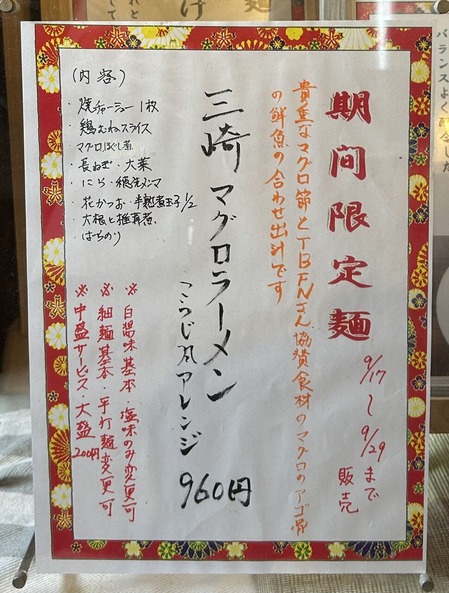 期間限定麺
9/17～9/29まで
販売
貴重なマグロ節とTBFNさん協賛食材のマグロのアゴ骨
の鮮魚の合わせ出汁です
三崎マグロラーメン
こうじ丸アレンジ
960円
(内容)
・焼チャーシュー1枚
・鶏むねスライス
マグロほぐし煮
・長ねぎ・大葉
・にら・穂先メンマ
・花かつお・半熟煮玉子1/2
・大根と椎茸煮
・ばらのり
※白湯味基本・塩味のみ変更可
※細麺基本・平打麺変更可
※中盛サービス・大盛200円
バランスよく配合した